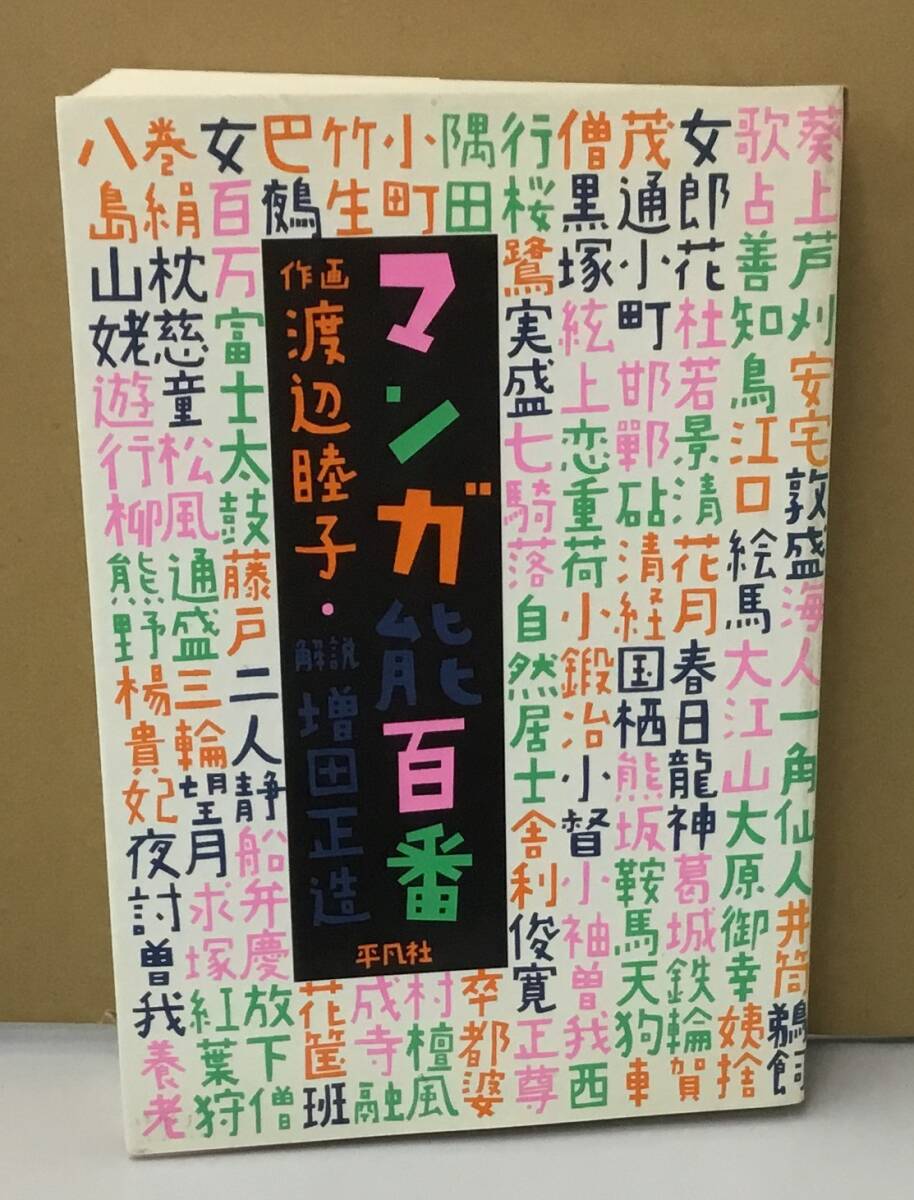 葵上芦刈安宅敦盛海人一角仙人井筒鵜飼
歌占善知鳥江口絵馬大江山大原御幸姨捨
女郎花杜若景清花月春日龍神葛城鉄輪賀
茂通小町邯鄲砧清経国栖熊坂鞍馬天狗車
僧黒塚絃上恋重荷小鍛冶小督小袖曽我西
行桜鷺実盛七騎落自然居士舎利俊寛正尊
隅田
卒都婆
小町
村檀風
竹生
成寺融
巴鵺
花筐班
女百万富士太鼓藤戸二人静船弁慶放下僧
巻絹枕慈童松風通盛三輪望月求塚紅葉狩
八島山姥遊行柳熊野楊貴妃夜討曽我養老
マンガ能百番
作画渡辺睦子・解説増田正造
平凡社